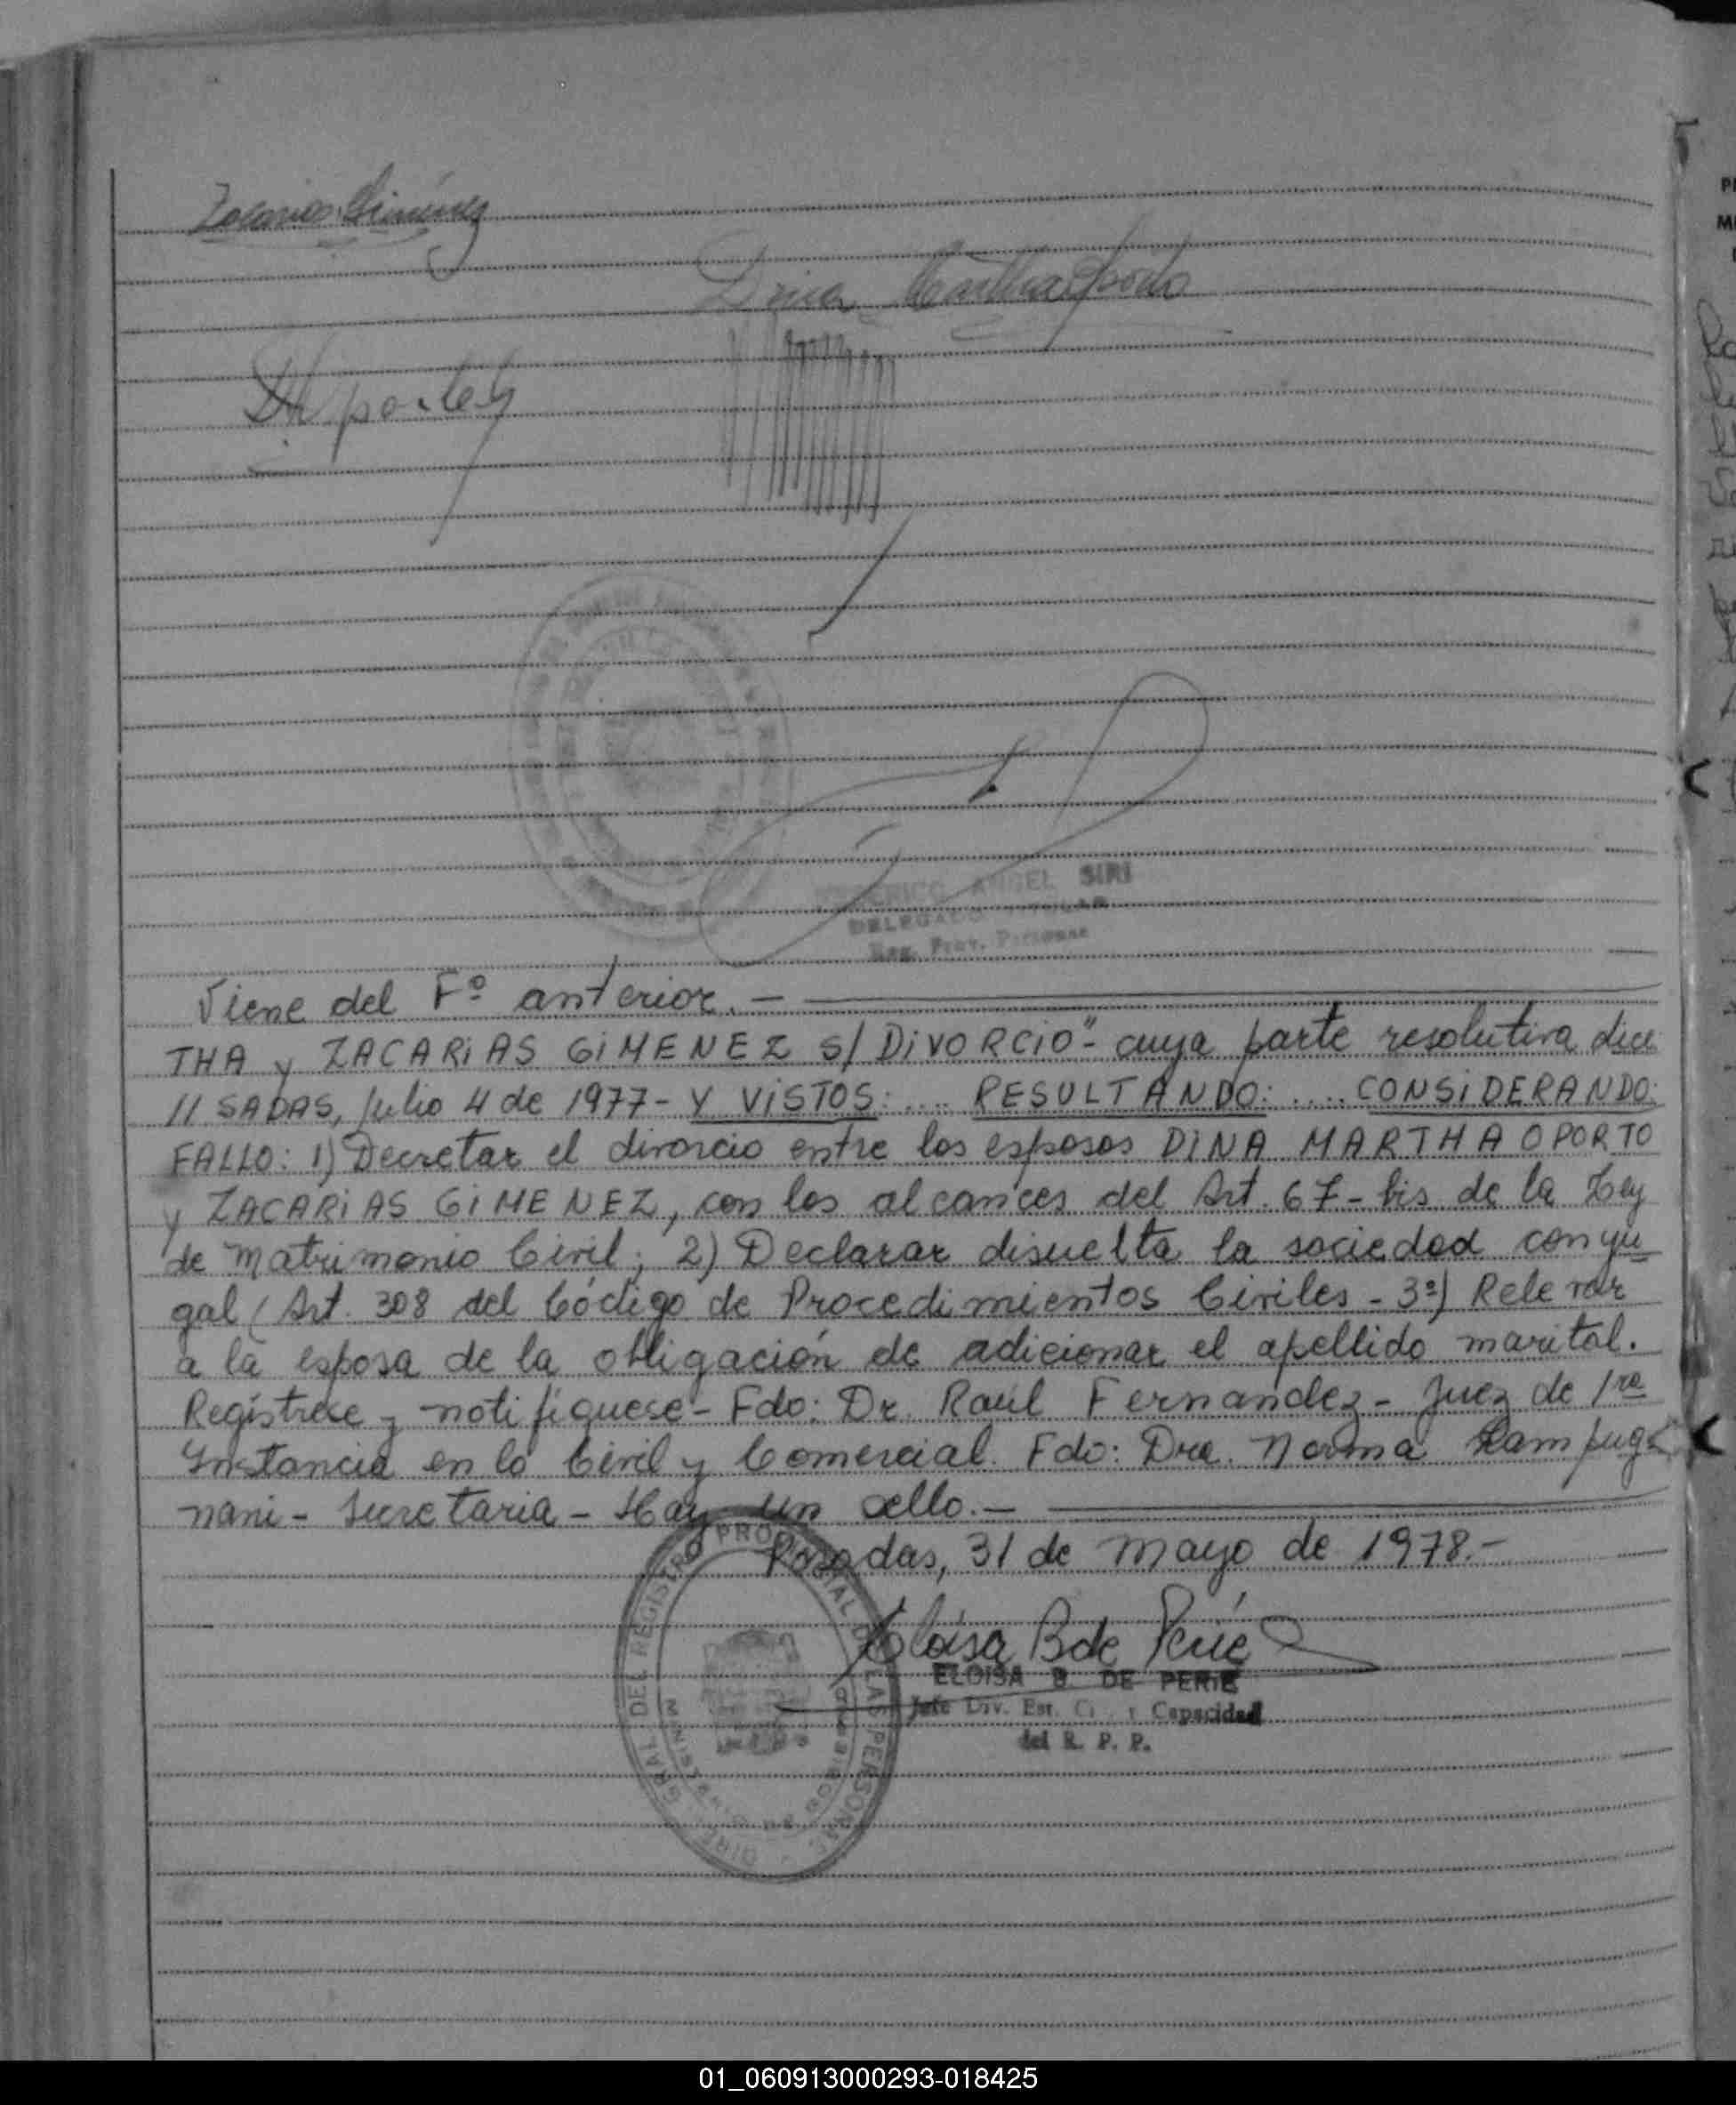 Zacarias Giménez
Dina Martha Oporto
FEDERICO ANGEL SIRI
DELEGADO TITULAR
Reg. Prov. Personas
Viene del Fº anterior.-
THA y ZACARIAS GIMENEZ s/ DIVORCIO"- cuya parte resolutiva dice
// SADAS, Julio 4 de 1977- Y VISTOS: .... RESULTANDO: .... CONSIDERANDO:
FALLO: 1) Decretar el divorcio entre los esposos DINA MARTHA OPORTO
y ZACARIAS GIMENEZ, con los alcances del Art. 67-bis de la Ley
de Matrimonio Civil; 2) Declarar disuelta la sociedad conyu
gal (Art. 308 del Código de Procedimientos Civiles - 3º) Relevar
a la esposa de la obligación de adicionar el apellido marital.
Regístrese y notifíquese- Fdo: Dr. Raúl Fernandez- Juez de 1ra
Instancia en lo Civil y Comercial. Fdo: Dra. Norma Lampug
nani- Secretaria- Hay un sello.-
Posadas, 31 de Mayo de 1978.-
Eloisa B de Perié
ELOISA B. DE PERIE
Jefe Div. Est. Ci. y Capacidad
del R. P. P.
DIRE GRAL DEL REGISTRO PROVINCIAL DE LAS PERSONAS
MINISTERIO DE GOBIERNO
01_060913000293-018425